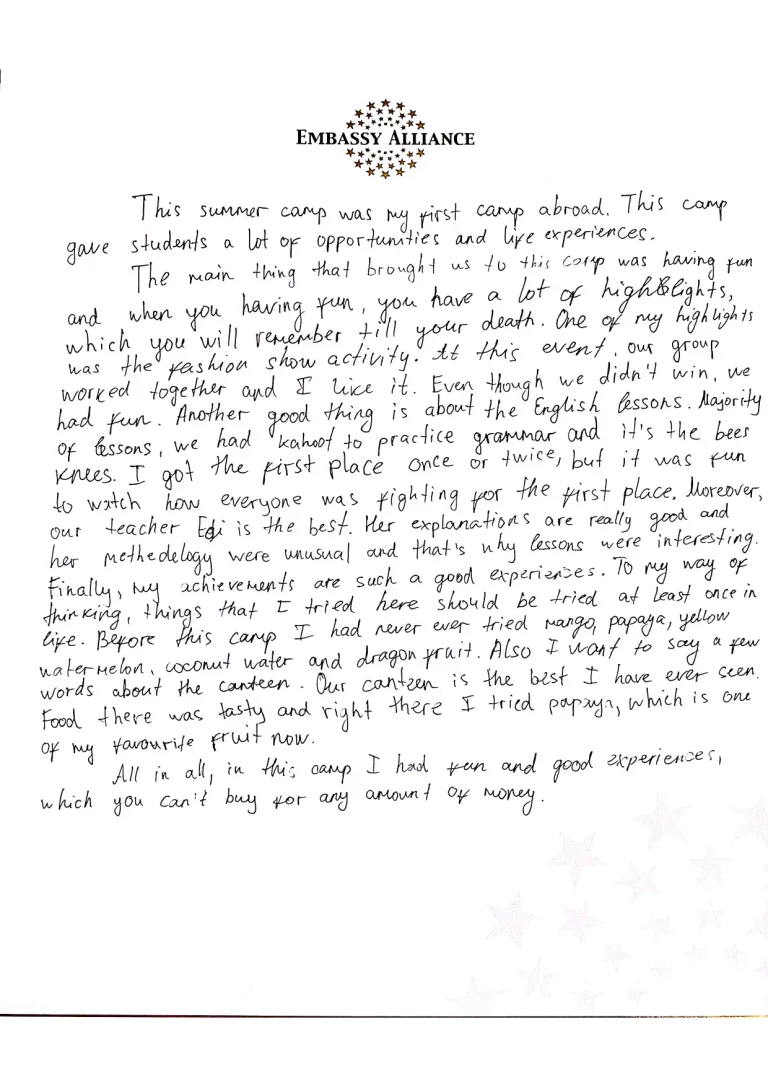 EMBASSY ALLIANCE
This summer camp was my first camp abroad. This camp
gave students a lot of opportunities and life experiences.
The main thing that brought us to this camp was having fun
and when you having fun, you have a lot of highlights,
which you will remember till your death. One of my highlights
was the fashion show activity. At this event, our group
worked together and I like it. Even though we didn't win, we
had fun. Another good thing is about the English lessons. Majority
of lessons, we had kahoot to practice grammar and it's the bees
knees. I got the first place once or twice, but it was fun
to watch how everyone was fighting for the first place. Moreover,
our teacher Edi is the best. Her explanations are really good and
her methedelogy were unusual and that's why lessons were interesting.
Finally, my achievements are such a good experiences. To my way of
thinking, things that I tried here should be tried at least once in
life. Before this camp I had never ever tried mango, papaya, yellow
watermelon, coconut water and dragon fruit. Also I want to say a few
words about the canteen. Our canteen is the best I have ever seen.
Food there was tasty and right there I tried papaya, which is one
of my favourite fruit now.
All in all, in this camp I had fun and good experiences,
which you can't buy for any amount of money.